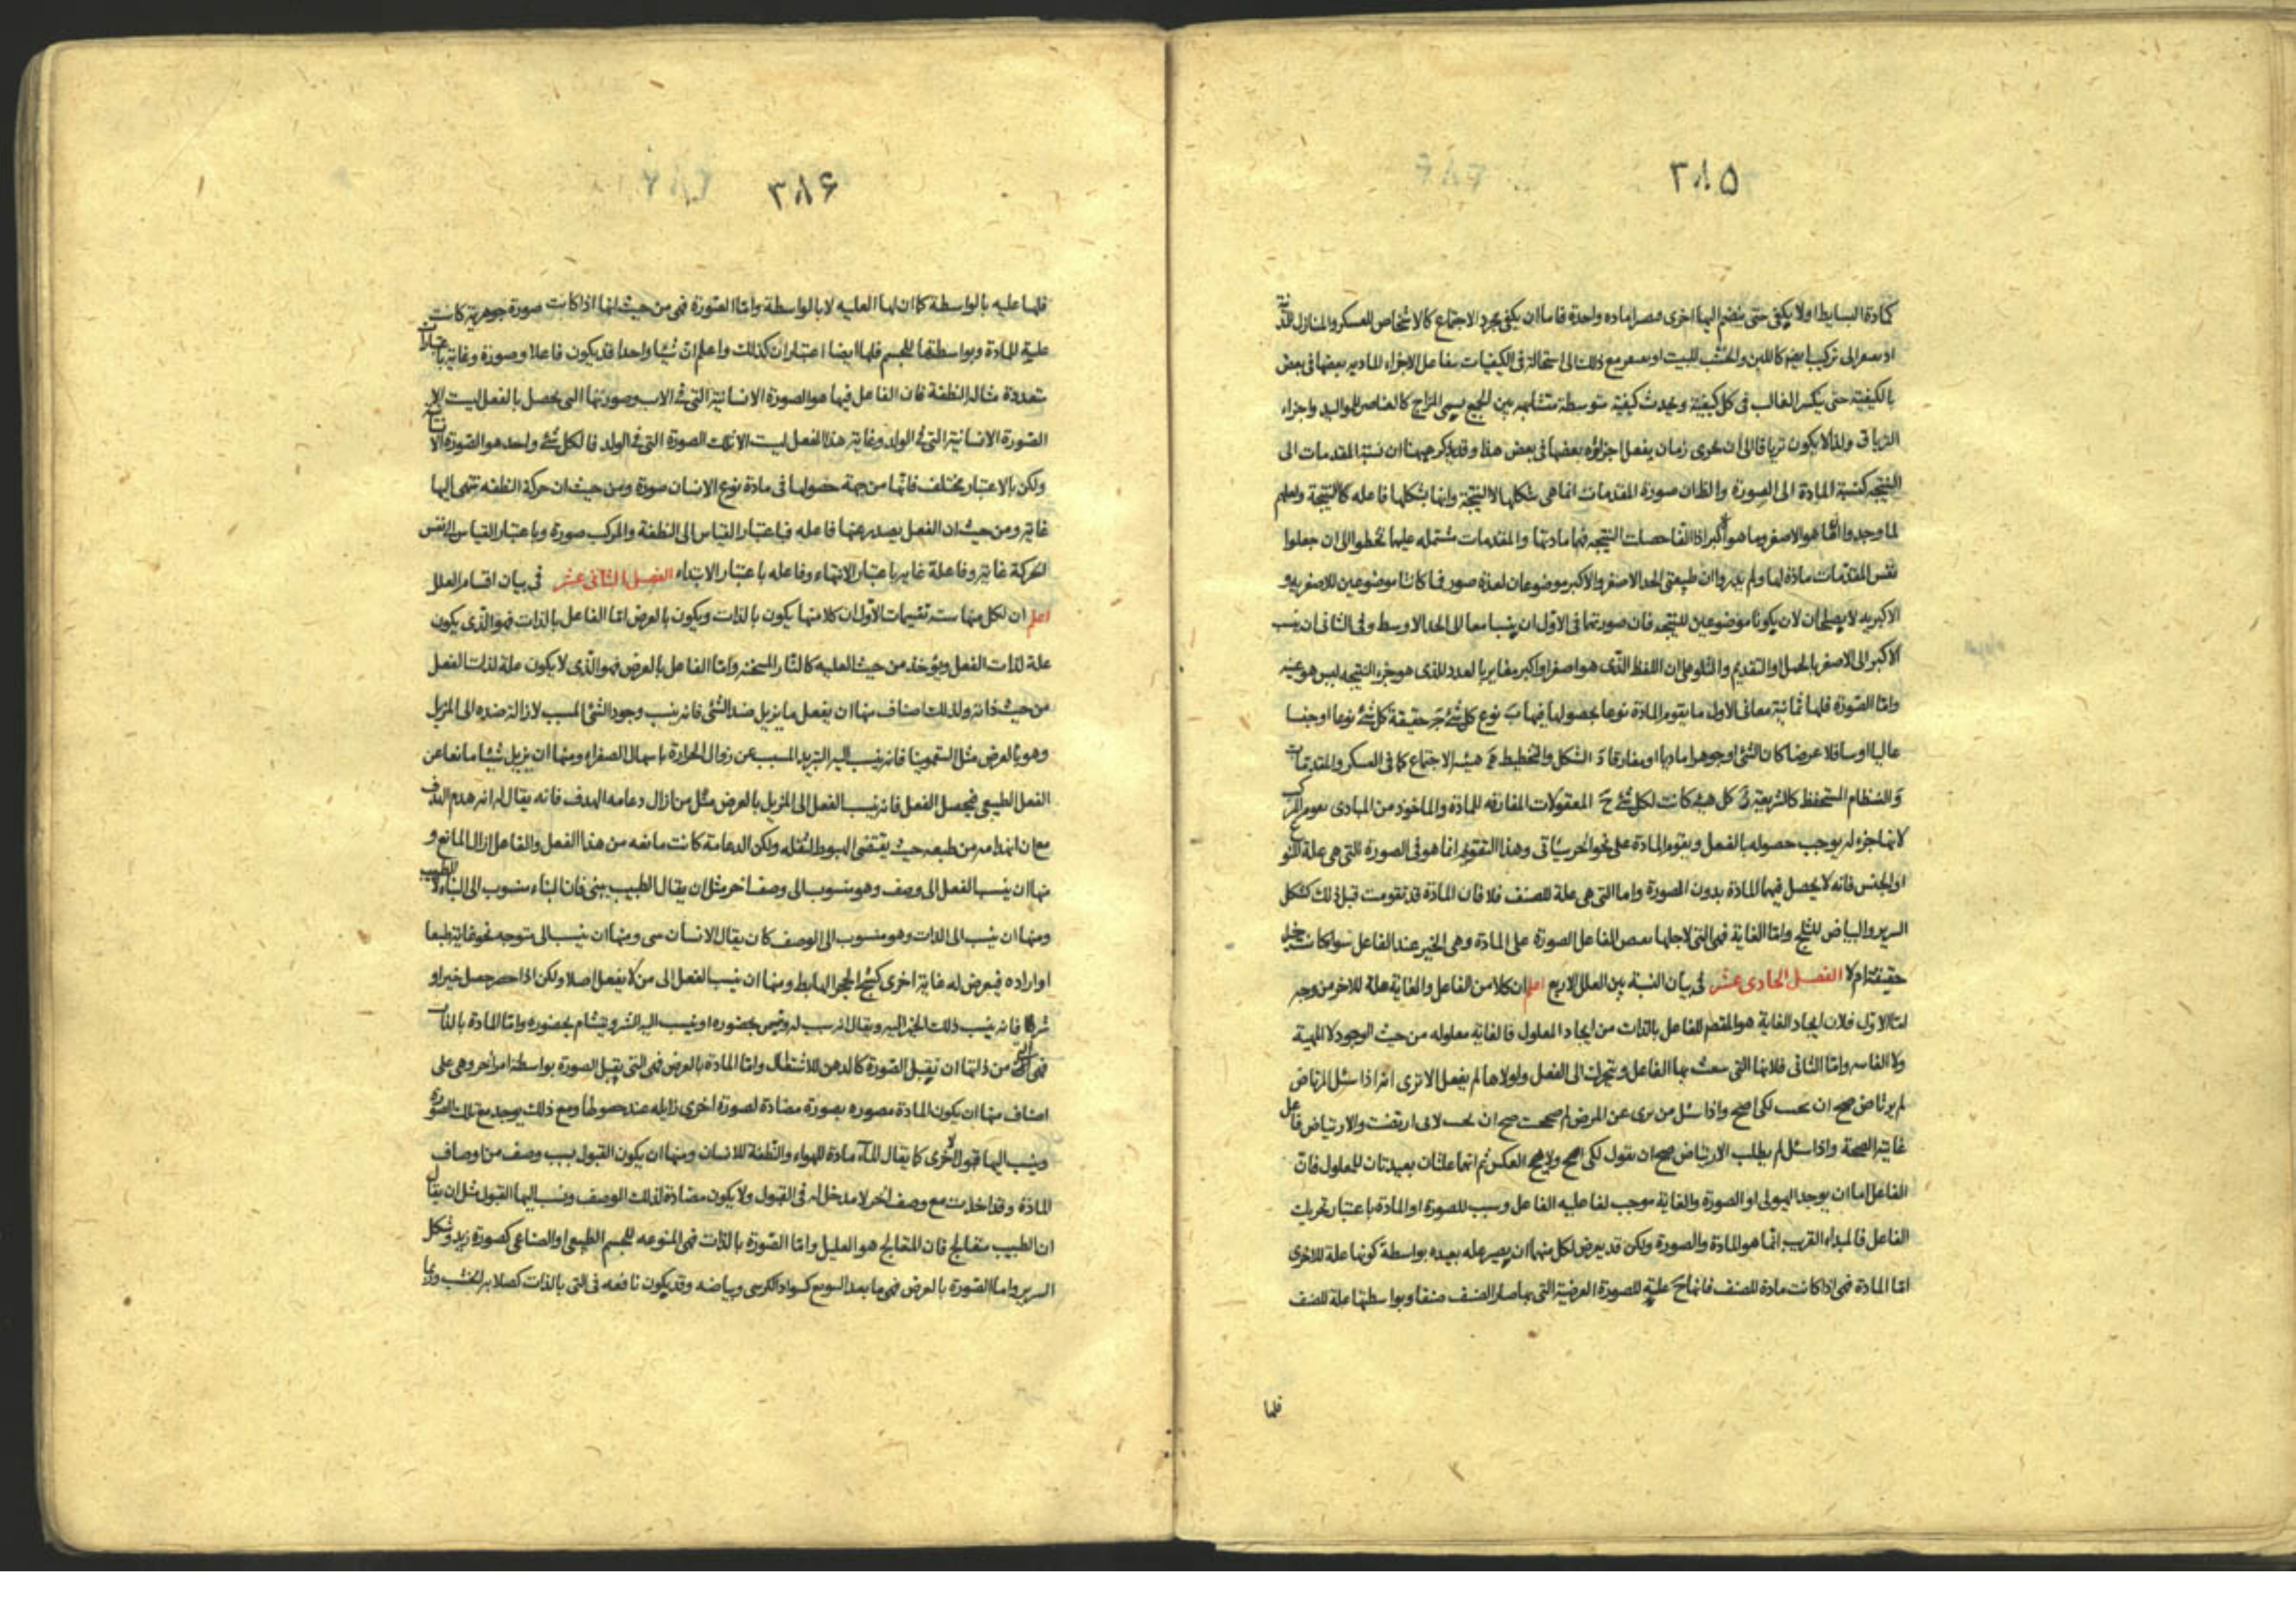 ٣٨٥
كمادة البسايط اولا يكفى حتى ينضم اليها اخرى فصر لماده واحدة فاما ان يكفى مجرد الاجتماع كالاشخاص للعسكر والمنازل للمدينة
او الى تركيب ايضا كاللبن والخشب للبيت او مع ذلك الى استحالة فى الكيفيات الاجزاء الماديه بعضها فى بعض
بالكيفية حتى ينكسر الغالب فى كل كيفية ويحدث كيفية متوسطة متشابهه بين الجميع يسمى المزاج كالعناصر للمواليد واجزاء
الترياق ولذا لا يكون ترياقا الى ان يجرى زمان يفعل اجزاؤه بعضها فى بعض هذا وقد يذكر ههنا ان نسبة المقدمات الى
النتيجه كنسبة المادة الى الصورة والظان صورة المقدمات انما هى شكلها لا النتيجة وانها بشكلها فاعله كالنتيجة ولعلهم
لما وجدوا انما هو الاصغر وما هو اكبر اذا التقا حصلت النتيجه فهما مادتها والمقدمات مشتمله عليهما تخطوا الى ان جعلوا
نفس المقدمات مادة لها ولم يدروا ان طبيعتى الحد الاصغر والاكبر موضوعان لعدة صور فما كانا موضوعين للاصغريه و
الاكبريه لا يصلحان لان يكونا موضوعين للنتيجه فان صورتهما فى الاول ان ينسبا معا الى الحد الاوسط وفى الثانى ان ينسب
الاكبر الى الاصغر بالحمل او التقديم والتلو على ان اللفظ الذى هو اصغر او اكبر مغاير بالعدد للذى هو جزء النتيجه ليس هو عينه
واما الصورة فلها ثمانية معانى الاول ما يقوم المادة نوعا بحصولها فيها ب نوع كل شئ ج حقيقة كل شئ نوعا او جنسا
عاليا او سافلا عرضا كان الشئ او جوهرا ماديا او مفارقا د الشكل والتخطيط ه هيئه الاجتماع كما فى العسكر والمقدمات
و النظام المستحفظ كالشريعة ز كل هيئه كانت لكل شئ ح المعقولات المفارقه للمادة والماخوذ من المبادى مقوم المركب
لانها جزء له يوجب حصوله بالفعل ويقوم المادة على نحو اخر سياتى وهذا التقويم انما هو فى الصورة التى هى علة للنوع
او الجنس فانه لا يحصل فيهما للمادة بدون الصورة واما التى هى علة للصنف فلا فان المادة قد تقومت قبل ذلك كشكل
السرير والبياض للثلج واما الغاية فهى التى لاجلها الفاعل الصورة على المادة وهى الخير عند الفاعل سوا كانت خيرا
حقيقة ام لا الفصل الحادى عشر فى بيان النسبة بين العلل الاربع اعلم ان كلا من الفاعل والغاية علة للاخر من وجه
اما الاول فلان ايجاد الغاية هو المقصد للفاعل بالذات من ايجاد المعلول فالغاية معلوله من حيث الوجود لا المهية
ولا واما الثانى فلانها التى بها الفاعل ويتحرك الى الفعل ولولاها لم يفعل الا ترى انه اذا سئل المرتاض
لم يرتاض صح ان لكى اصح واذا سئل من برى عن المرض لم صححت صح ان لانى ارتضت والارتياض فاعل
غاية الصحة واذا سئل لم يطلب الارتياض صح ان يقول لكى اصح ولا يصح العكس ثم انهما علتان بعيدتان للمعلول فان
الفاعل اما ان يوجد الهيولى او الصورة والغاية موجب لفاعليه الفاعل وسبب للصورة او المادة باعتبار تحريك
الفاعل فالمبداء القريب انما هو المادة والصورة ولكن قد يعرض لكل منهما ان يصير عله بعيده بواسطة كونها علة للاخرى
اما المادة فهى اذا كانت مادة للصنف فانها ح علية للصورة العرضية التى بها صار الصنف صنفا وبواسطتها علة للصنف
فلها
٣٨٦
فلها عليه بالواسطة كما ان لها العليه لا بالواسطة واما الصورة فهى من حيث انها اذا كانت صورة جوهرية كانت
علية للمادة وبواسطتها للجسم فلها ايضا اعتباران كذلك واعلم ان شيئا واحدا قد يكون فاعلا وصورة وغاية باعتبارات
متعددة مثاله النطفة فان الفاعل فيها هو الصورة الانسانية التى فى الاب وصورتها التى يحصل بالفعل ليست الا
الصورة الانسانية التى فى الولد وغاية هذا الفعل ليست الا تلك الصورة التى فى الولد فالكل شئ واحد هو الصورة الانسانية
ولكن بالاعتبار يختلف فانها من جهة حصولها فى مادة نوع الانسان صورة ومن حيث ان حركة النطفه تنتهى اليها
غاية ومن حيث ان الفعل يصدر عنها فاعله فباعتبار القياس الى النطفة والمركب صورة وباعتبار القياس الى نفس
الحركة غاية وفاعلة غاية باعتبار الانتهاء وفاعله باعتبار الابتداء الفصل الثانى عشر فى بيان اقسام العلل
اعلم ان لكل منها ستة تقسيمات الاول ان كلا منها يكون بالذات ويكون بالعرض اما الفاعل بالذات فهو الذى يكون
علة لذات الفعل ويؤخذ من حيث العلية كالنار المسخنة واما الفاعل بالعرض فهو الذى لا يكون علة لذات الفعل
من حيث ذاته ولذلك اصناف منها ان يفعل ما يزيل ضد الشئ فانه ينسب وجود الشئ المسبب لازالة ضده الى المزيل
وهو بالعرض مثل السقمونيا فانه ينسب اليه التبريد المسبب عن زوال الحرارة باسهال الصفراء ومنها ان يزيل شيئا مانعا عن
الفعل الطبيعى فيحصل الفعل فانه ينسب الفعل الى المزيل بالعرض مثل من ازال دعامه الهدف فانه يقال له انه هدم الهدف
مع ان انهدامه من طبعه حيث يقتضى الهبوط لثقله ولكن الدعامة كانت مانعه من هذا الفعل والفاعل ازال المانع و
منها ان ينسب الفعل الى وصف وهو منسوب الى وصف اخر مثل ان يقال الطبيب يبنى فان البناء منسوب الى البناء لا الطبيب
ومنها ان ينسب الى الذات وهو منسوب الى الوصف كان يقال الانسان يبنى ومنها ان ينسب الى متوجه نحو غاية طبعا
او اراده فيعرض له غاية اخرى كشج الحجر الهابط ومنها ان ينسب الفعل الى من لا يفعل اصلا ولكن اذا حضر حصل خير او
شر فانه ينسب ذلك الخير اليه ويقال انه سبب له ويتيمن بحضوره او ينسب اليه الشر ويتشام بحضوره واما المادة بالذات
فهى التى من ذاتها ان تقبل الصورة كالدهن للاشتعال واما المادة بالعرض فهى التى يقبل الصورة بواسطة امر اخر وهى على
اصناف منها ان يكون المادة مصوره بصورة مضادة لصورة اخرى زايله عند حصولها ومع ذلك يوجد مع تلك الصورة
وينسب اليها قبول الاخرى كما يقال الماء مادة للهواء والنطفة للانسان ومنها ان يكون القبول بسبب وصف من اوصاف
المادة وقد اخذت مع وصف اخر لا مدخل له فى القبول ولا يكون مضادة لذلك الوصف وينسب اليها القبول مثل ان يقال
ان الطبيب متعالج فان المتعالج هو العليل واما الصورة بالذات فهى المنوعه للجسم الطبيعى او الصناعى كصورة زيد وشكل
السرير واما الصورة بالعرض فهى ما بعد النوع كسواد الكرسى وبياضه وقد يكون نافعه فى التى بالذات كصلابة الخشب وربما